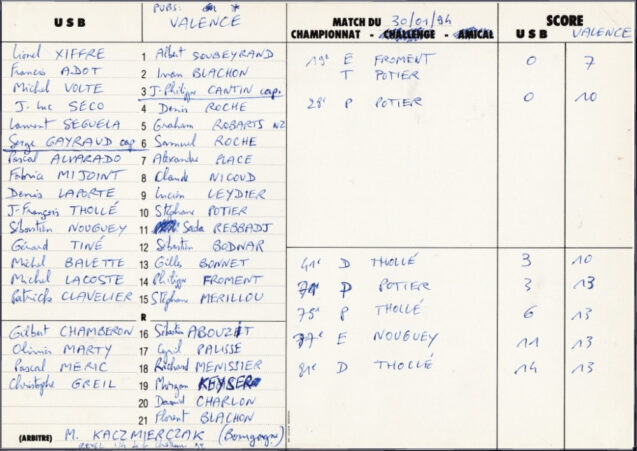 U S B
PUBS:
VALENCE
MATCH DU 30/01/94
CHAMPIONNAT - CHALLENGE - AMICAL
SCORE
U S B VALENCE
Lionel XIFFRE 1 Albert SOUBEYRAND
Francis ADOT 2 Iwan BLACHON
Michel VOLTE 3 J-Philippe CANTIN cap.
J. Luc SECO 4 Denis ROCHE
Laurent SEGUELA 5 Graham ROBARTS NZ
Serge GAYRAUD cap 6 Samuel ROCHE
Pascal ALVARADO 7 Alexandre PLACE
Fabrice MIJOINT 8 Claude NICOUD
Denis LAPORTE 9 Lucien LEYDIER
J-François THOLLÉ 10 Stéphane POTIER
Sébastien NOUGUEY 11 Sada REBBADJ
Gérard TINÉ 12 Sébastien BODNAR
Michel BALETTE 13 Gilles BONNET
Michel LACOSTE 14 Philippe FROMENT
Patrick CLAVELIER 15 Stéphane MERILLOU
R
Gilbert CHAMBERON 16 Sébastien ABOUZÉIT
Olivier MARTY 17 Cyril PALISSE
Pascal MERIC 18 Richard MENISSIER
Christophe GREIL 19 Morgan KEYSER
20 Daniel CHARLON
21 Florent BLACHON
(ARBITRE) M. KACZMIERCZAK (Bourgogne)
19e E FROMENT 0 7
T POTIER
28e P POTIER 0 10
41e D THOLLÉ 3 10
71e P POTIER 3 13
75e P THOLLÉ 6 13
77e E NOUGUEY 11 13
81e D THOLLÉ 14 13